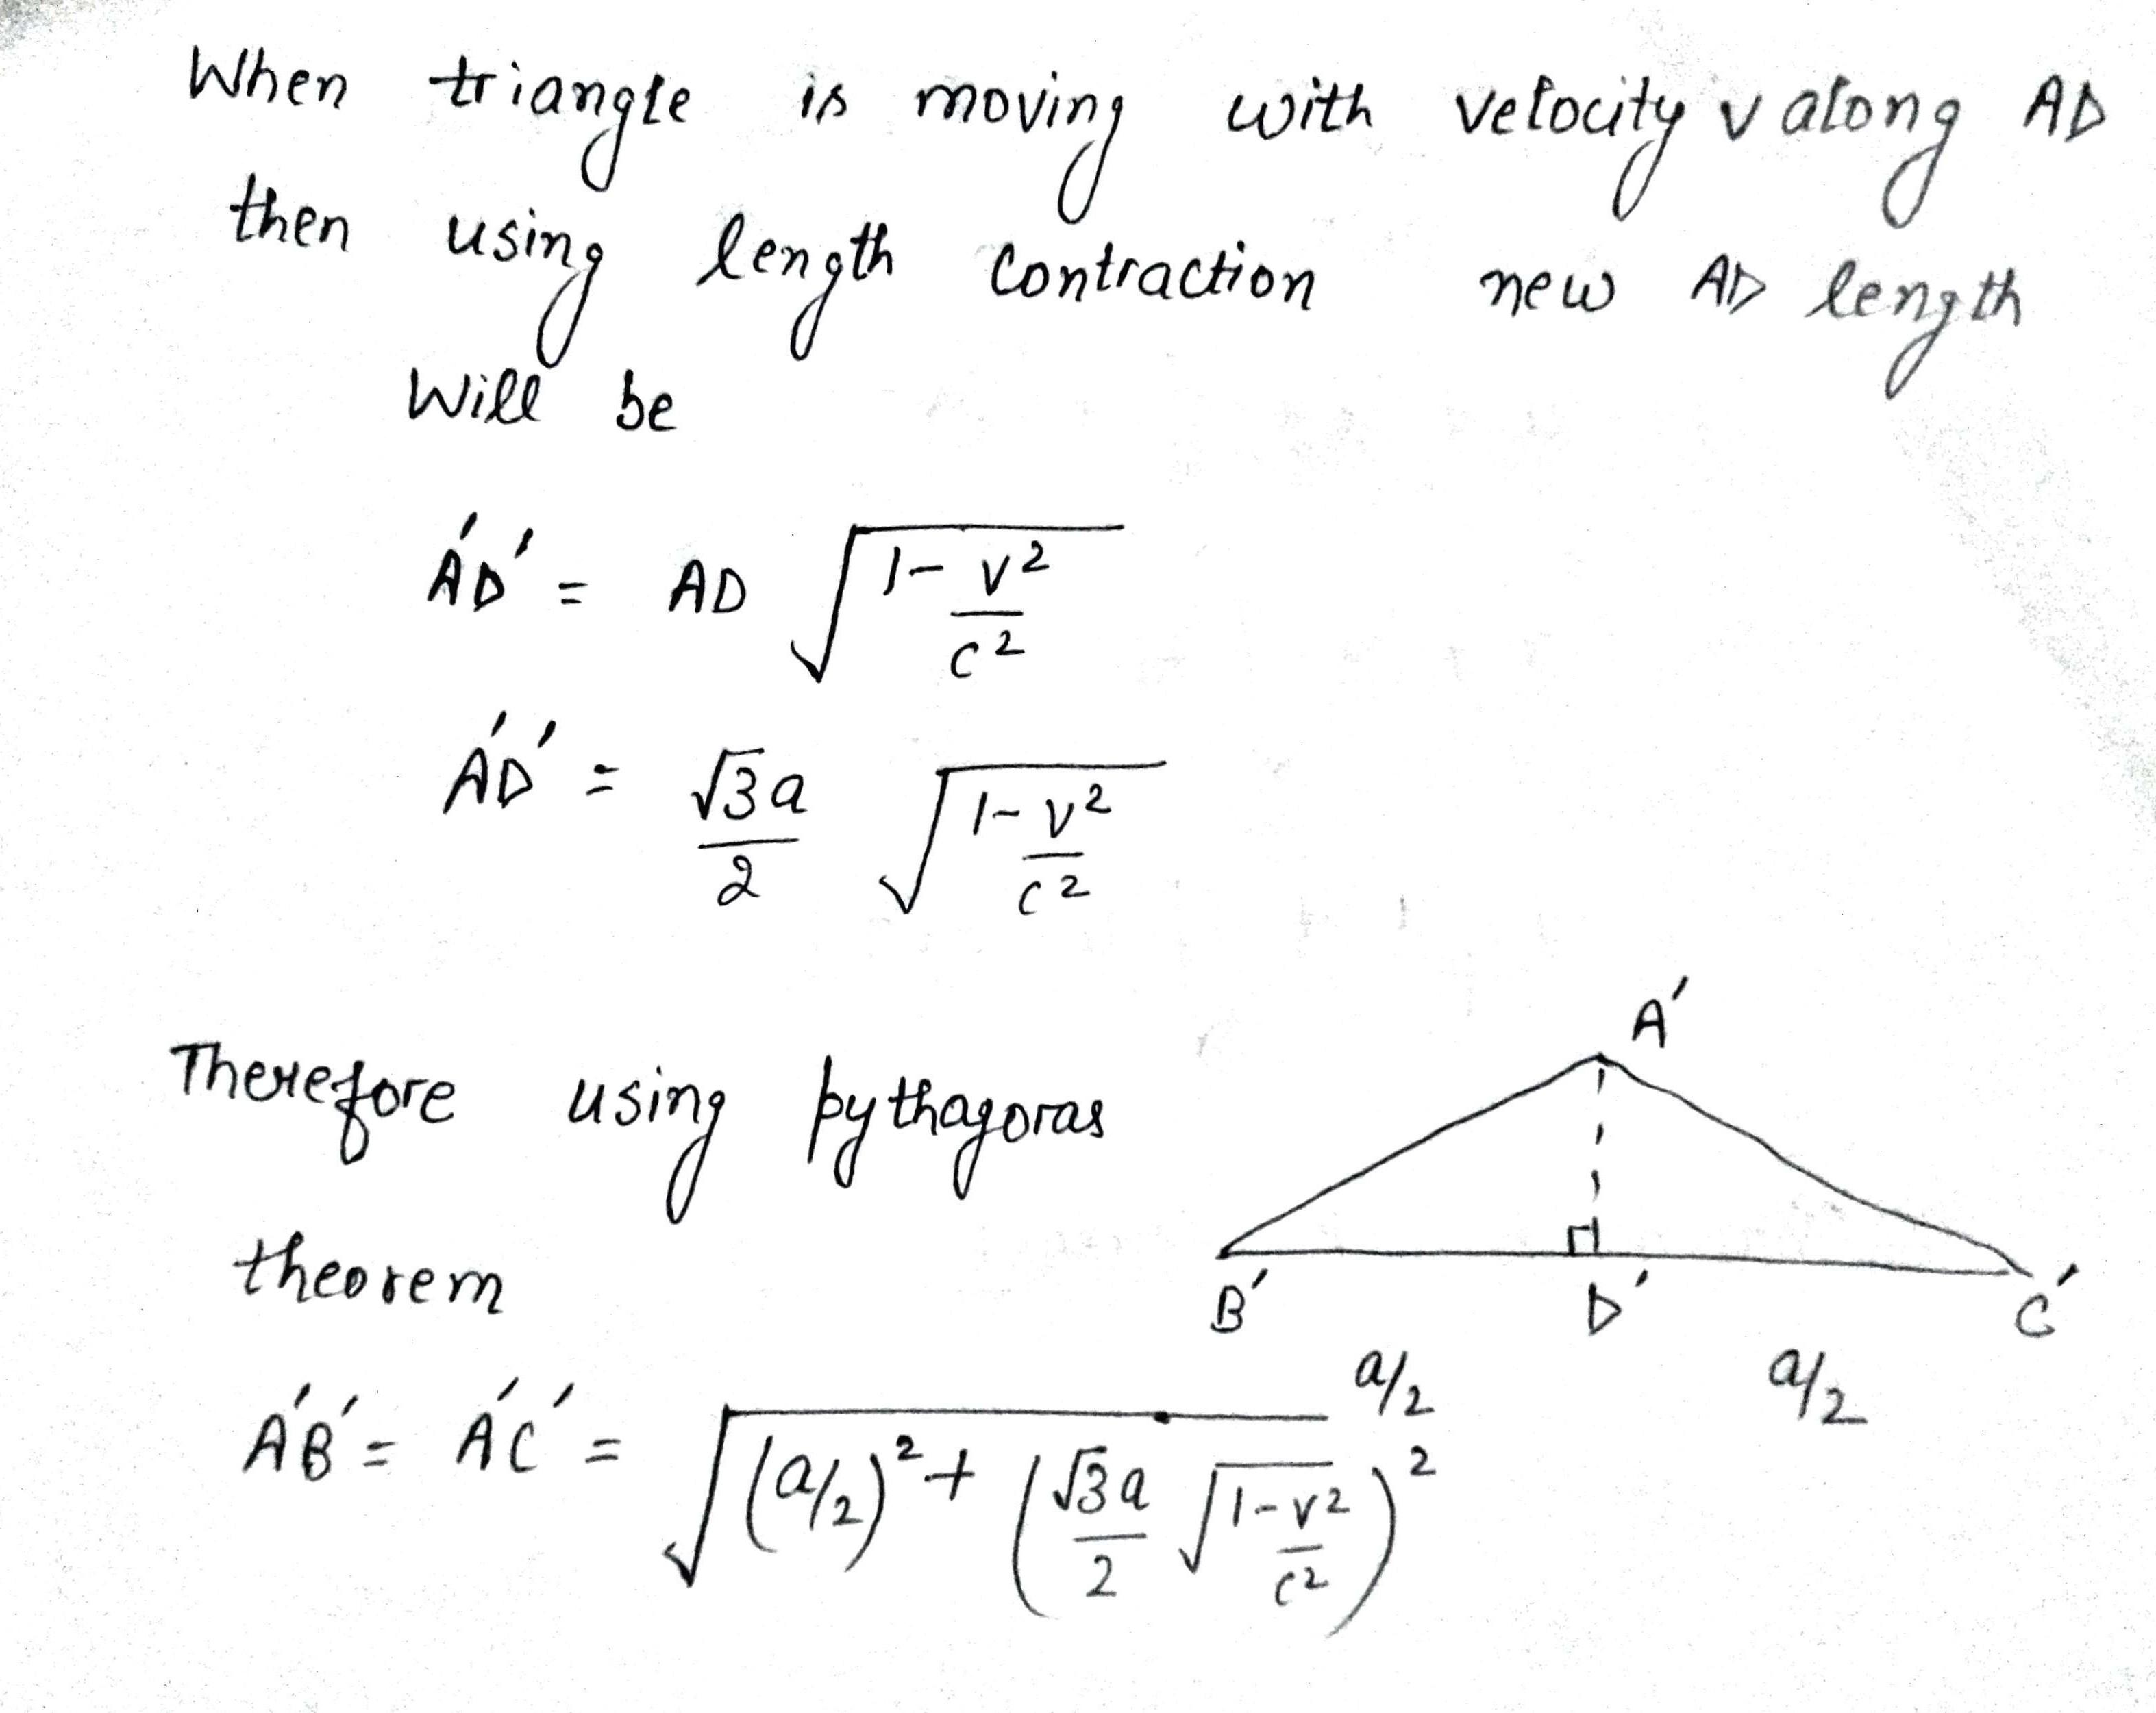 When triangle is moving with velocity v along AD
then using length contraction new AD length
Will be
A'D' = AD √(1 - v²/c²)
A'D' = √3a/2 √(1 - v²/c²)
Therefore using pythagoras
theorem
A'B' = A'C' = √((a/2)² + (√3a/2 √(1 - v²/c²))²)
A'
B' D' C'
a/2 a/2